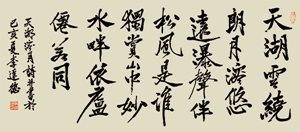 天湖雲繞
朗月溶悠
遠瀑聲伴
松風是誰
獨賞山中妙
水畔依廬
僊若同
天湖溶月詩並書於
己亥夏李道德